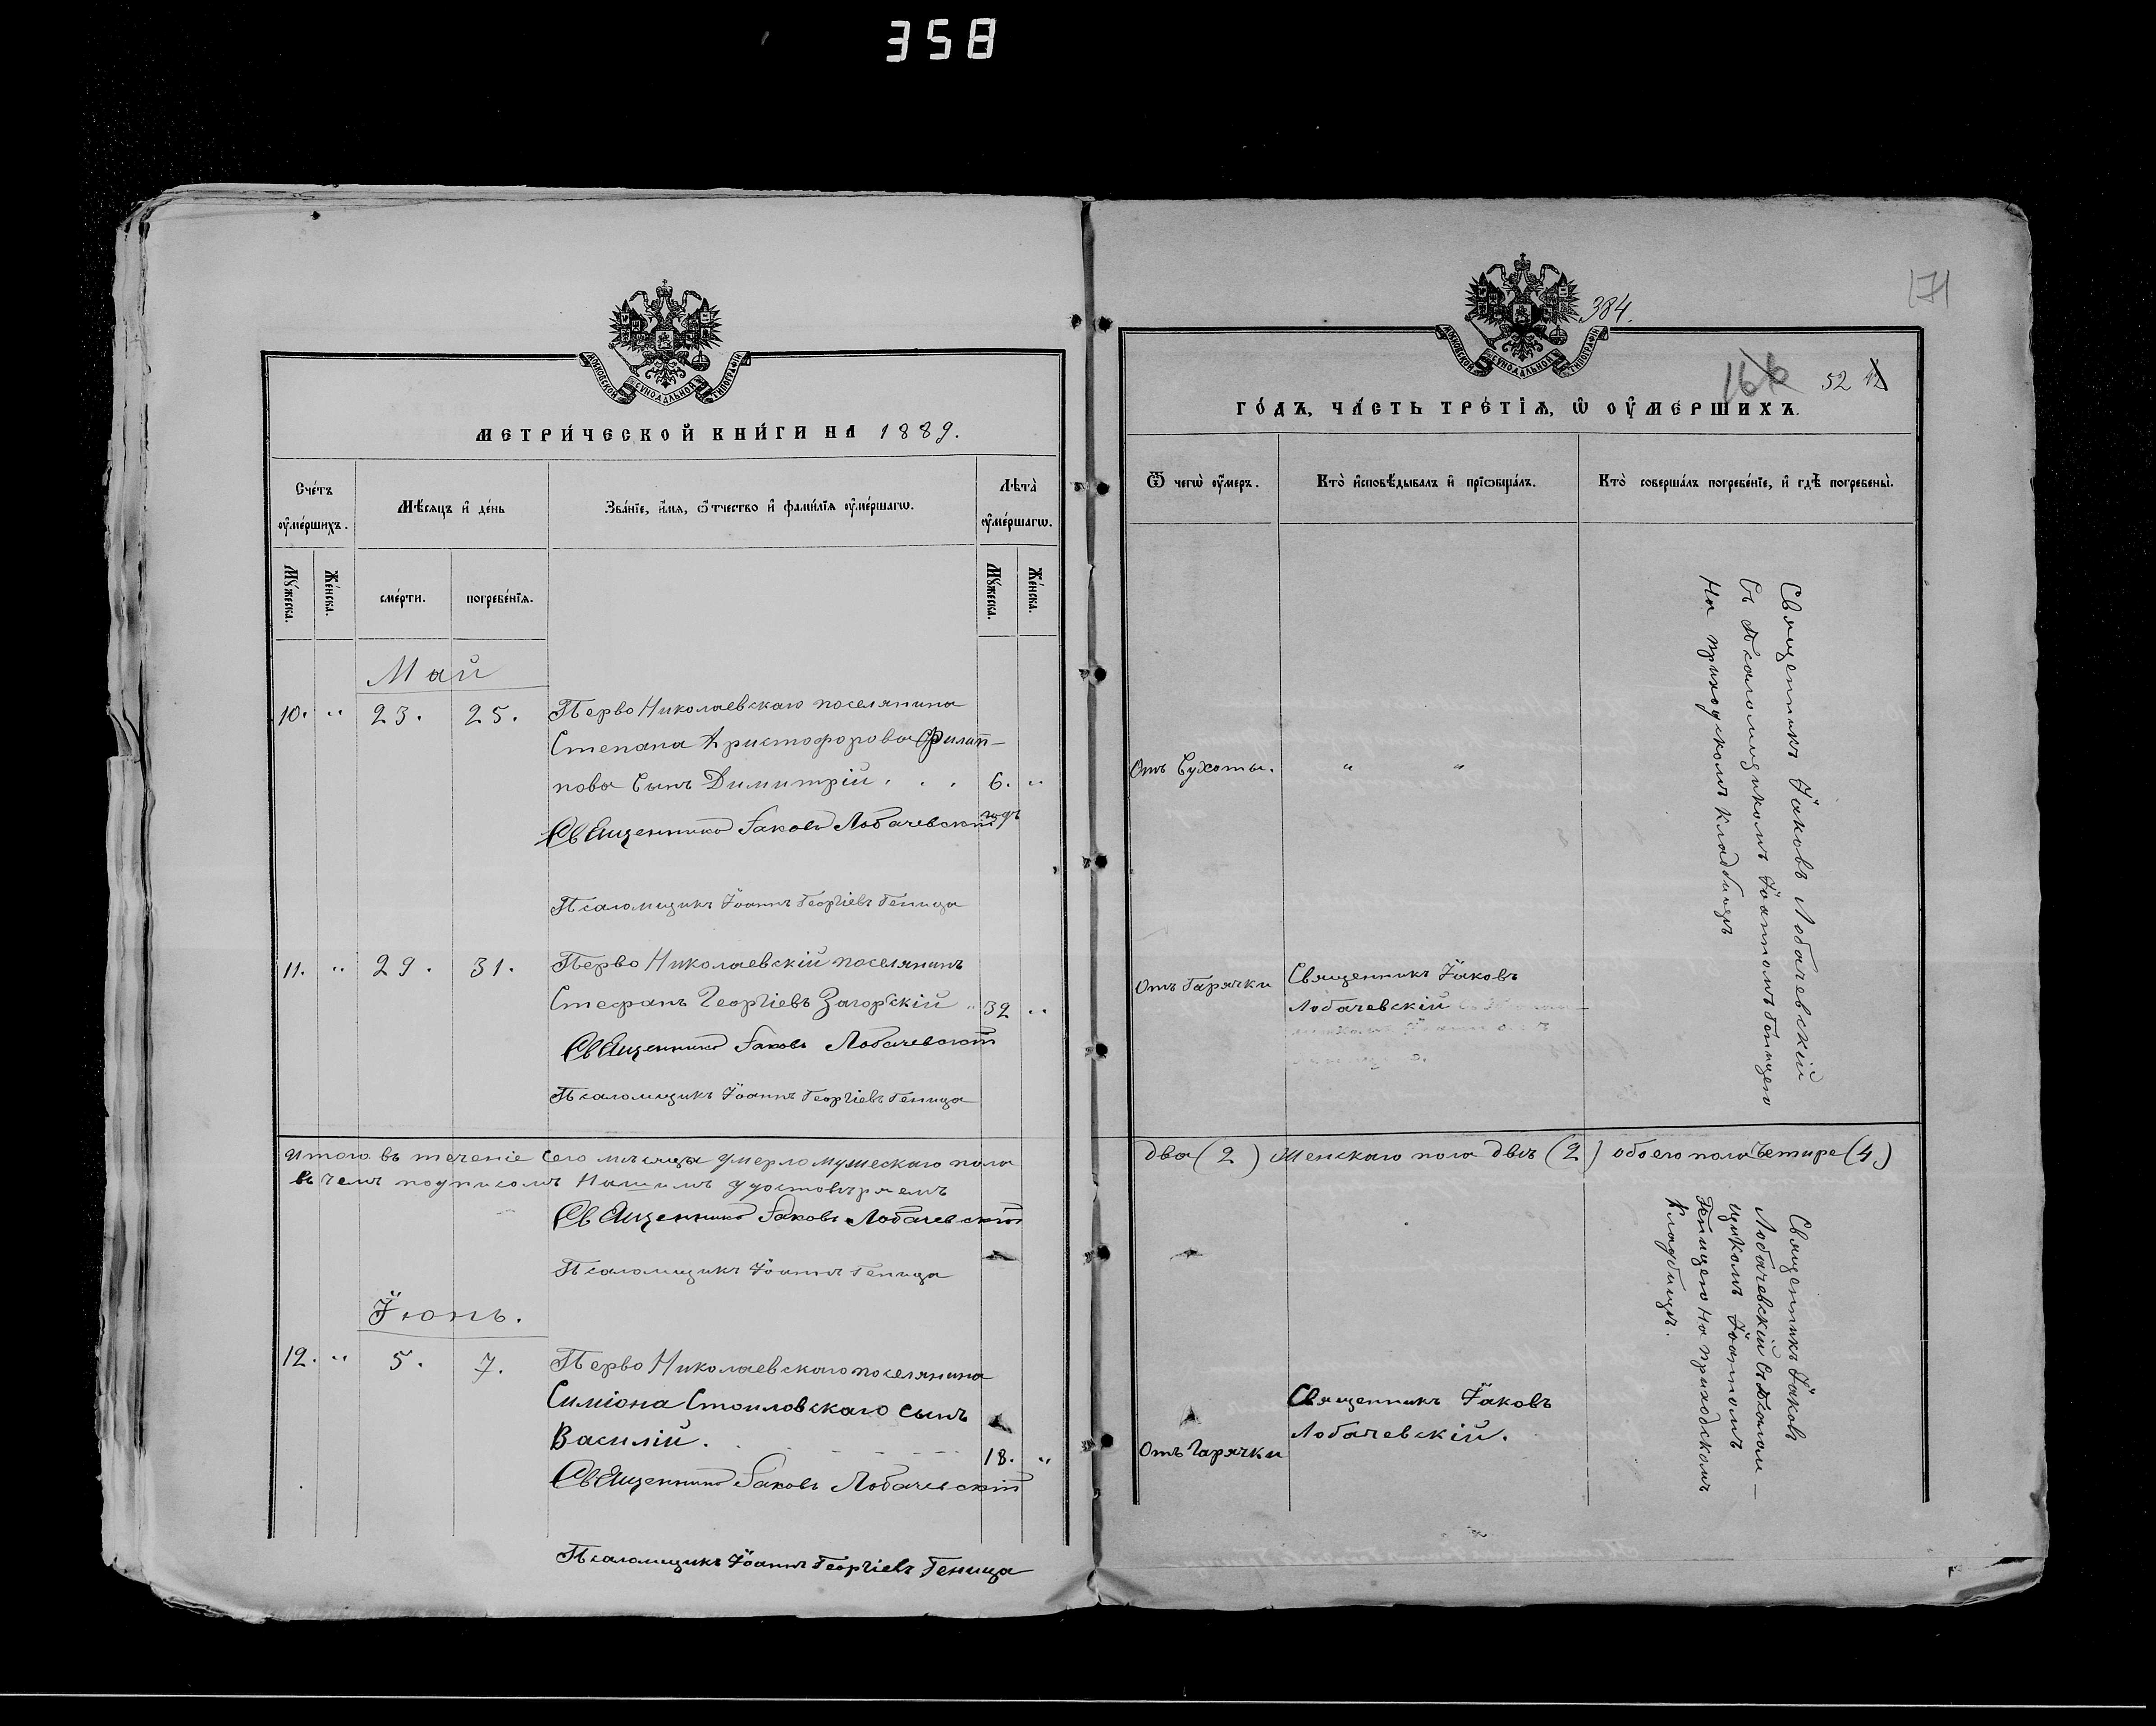 358
МОСКОВСКОЙ СѴНОДАЛЬНОЙ ТИПОГРАФІИ
МЕТРИ́ЧЕСКОЙ КНИ́ГИ НА 1889.
Сче́тъ ᲂу҆ме́ршихъ.
Мѣ́сѧцъ и҆ де́нь
Зва́нїе, и҆́мѧ, ѻ҆́тчество и҆ фами́лїѧ ᲂу҆ме́ршагѡ.
Лѣ́та ᲂу҆ме́ршагѡ.
Мꙋ́жеска.
Же́нска.
сме́рти.
погребе́нїѧ.
Мꙋ́жеска.
Же́нска.
Май
10. " 23. 25. Перво Николаевскаго поселянина
Степана Христофорова Филип-
пова Сынъ Димитрій . . . 6. "
годъ
Священникъ Іаковъ Лобачевскій
Псаломщикъ Іоаннъ Георгіевъ Геница
11. " 29. 31. Перво Николаевскій поселянинъ
Стефанъ Георгіевъ Загорскій " 32 "
Священникъ Іаковъ Лобачевскій
Псаломщикъ Іоаннъ Георгіевъ Геница
Итого въ теченіе сего мѣсяца умерло мужескаго пола
въ чемъ подписомъ Нашимъ удостовѣряемъ
Священникъ Іаковъ Лобачевскій
Псаломщикъ Іоаннъ Геница
Іюнь.
12. " 5. 7. Перво Николаевскаго поселянина
Симіона Стоиловскаго сынъ
Василій. 18. "
Священникъ Іаковъ Лобачевскій
Псаломщикъ Іоаннъ Георгіевъ Геница
384.
171
166 52 42
МОСКОВСКОЙ СѴНОДАЛЬНОЙ ТИПОГРАФІИ
ГО́ДЪ, ЧА́СТЬ ТРЕ́ТЇѦ, Ѡ҆ ОУ҆МЕ́РШИХЪ.
Ѿ чегѡ̀ ᲂу҆́меръ.
Кто̀ и҆сповѣ́дывалъ и҆ прїѡбща́лъ.
Кто̀ соверша́лъ погребе́нїе, и҆ гдѣ̀ погребены̀.
Отъ Сухоты. " "
Священникъ Іаковъ Лобачевскій
Съ Псаломщикомъ Іоанномъ Геницею
На приходскомъ кладбищѣ
Отъ Гарячки Священникъ Іаковъ
Лобачевскій
два (2) Женскаго пола двѣ (2) обоего пола Четире (4)
Священникъ Іаковъ
Лобачевскій Съ Псалом-
щикомъ Іоанномъ
Геницею На приходскомъ
Кладбищѣ.
Отъ Гарячки
Священникъ Іаковъ
Лобачевскій.